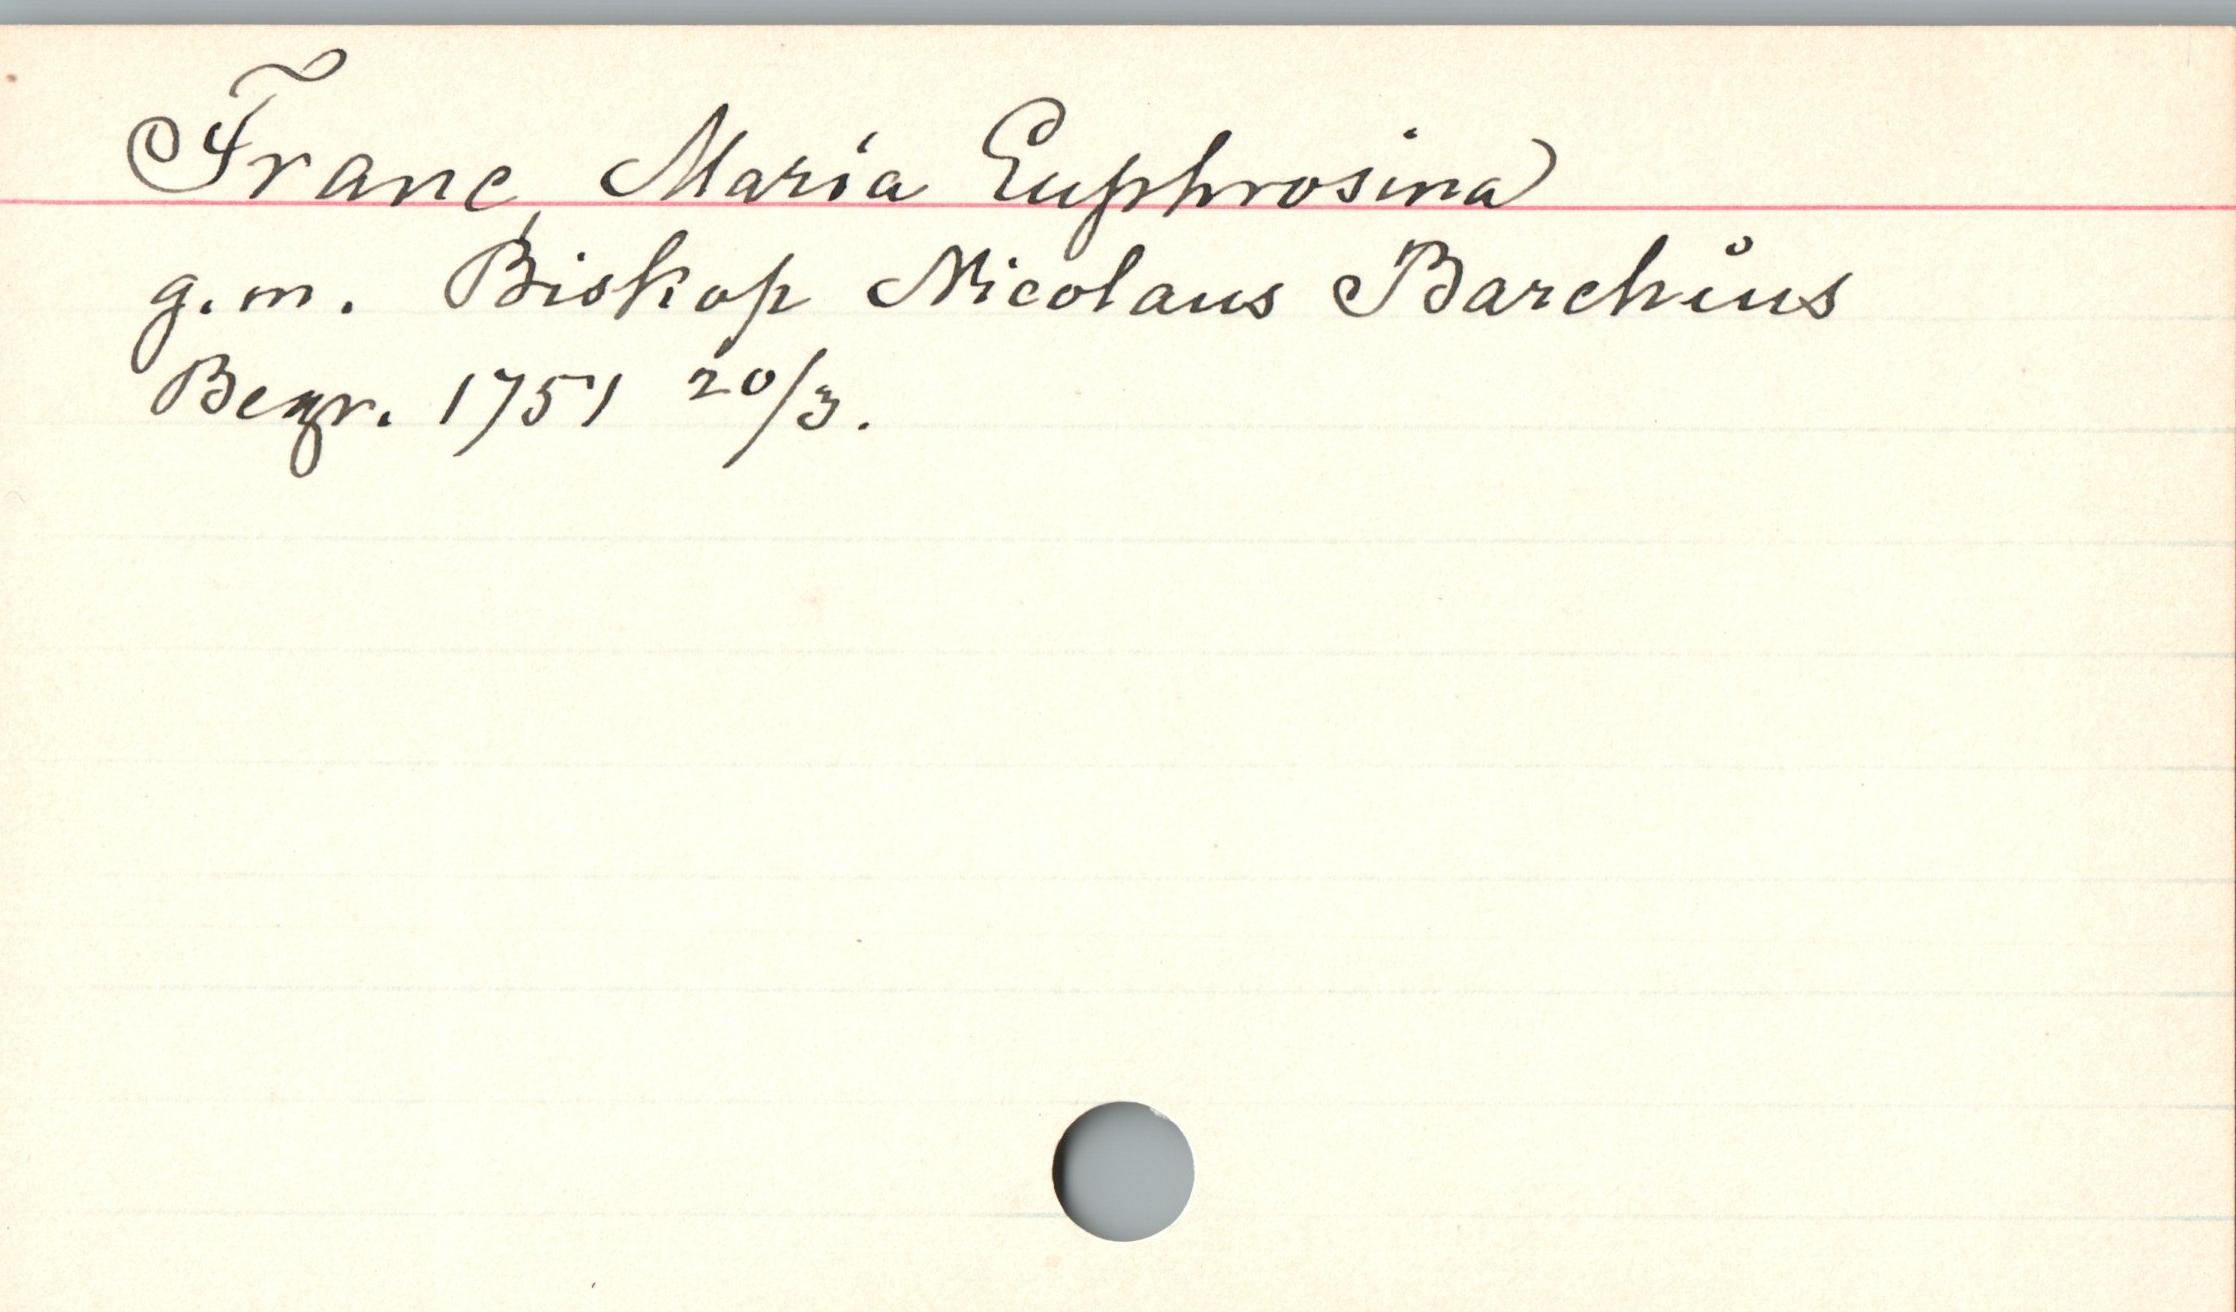 Franc, Maria Euphrosina
g.m. Biskop Nicolaus Barchius
Begr. 1751 20/3.